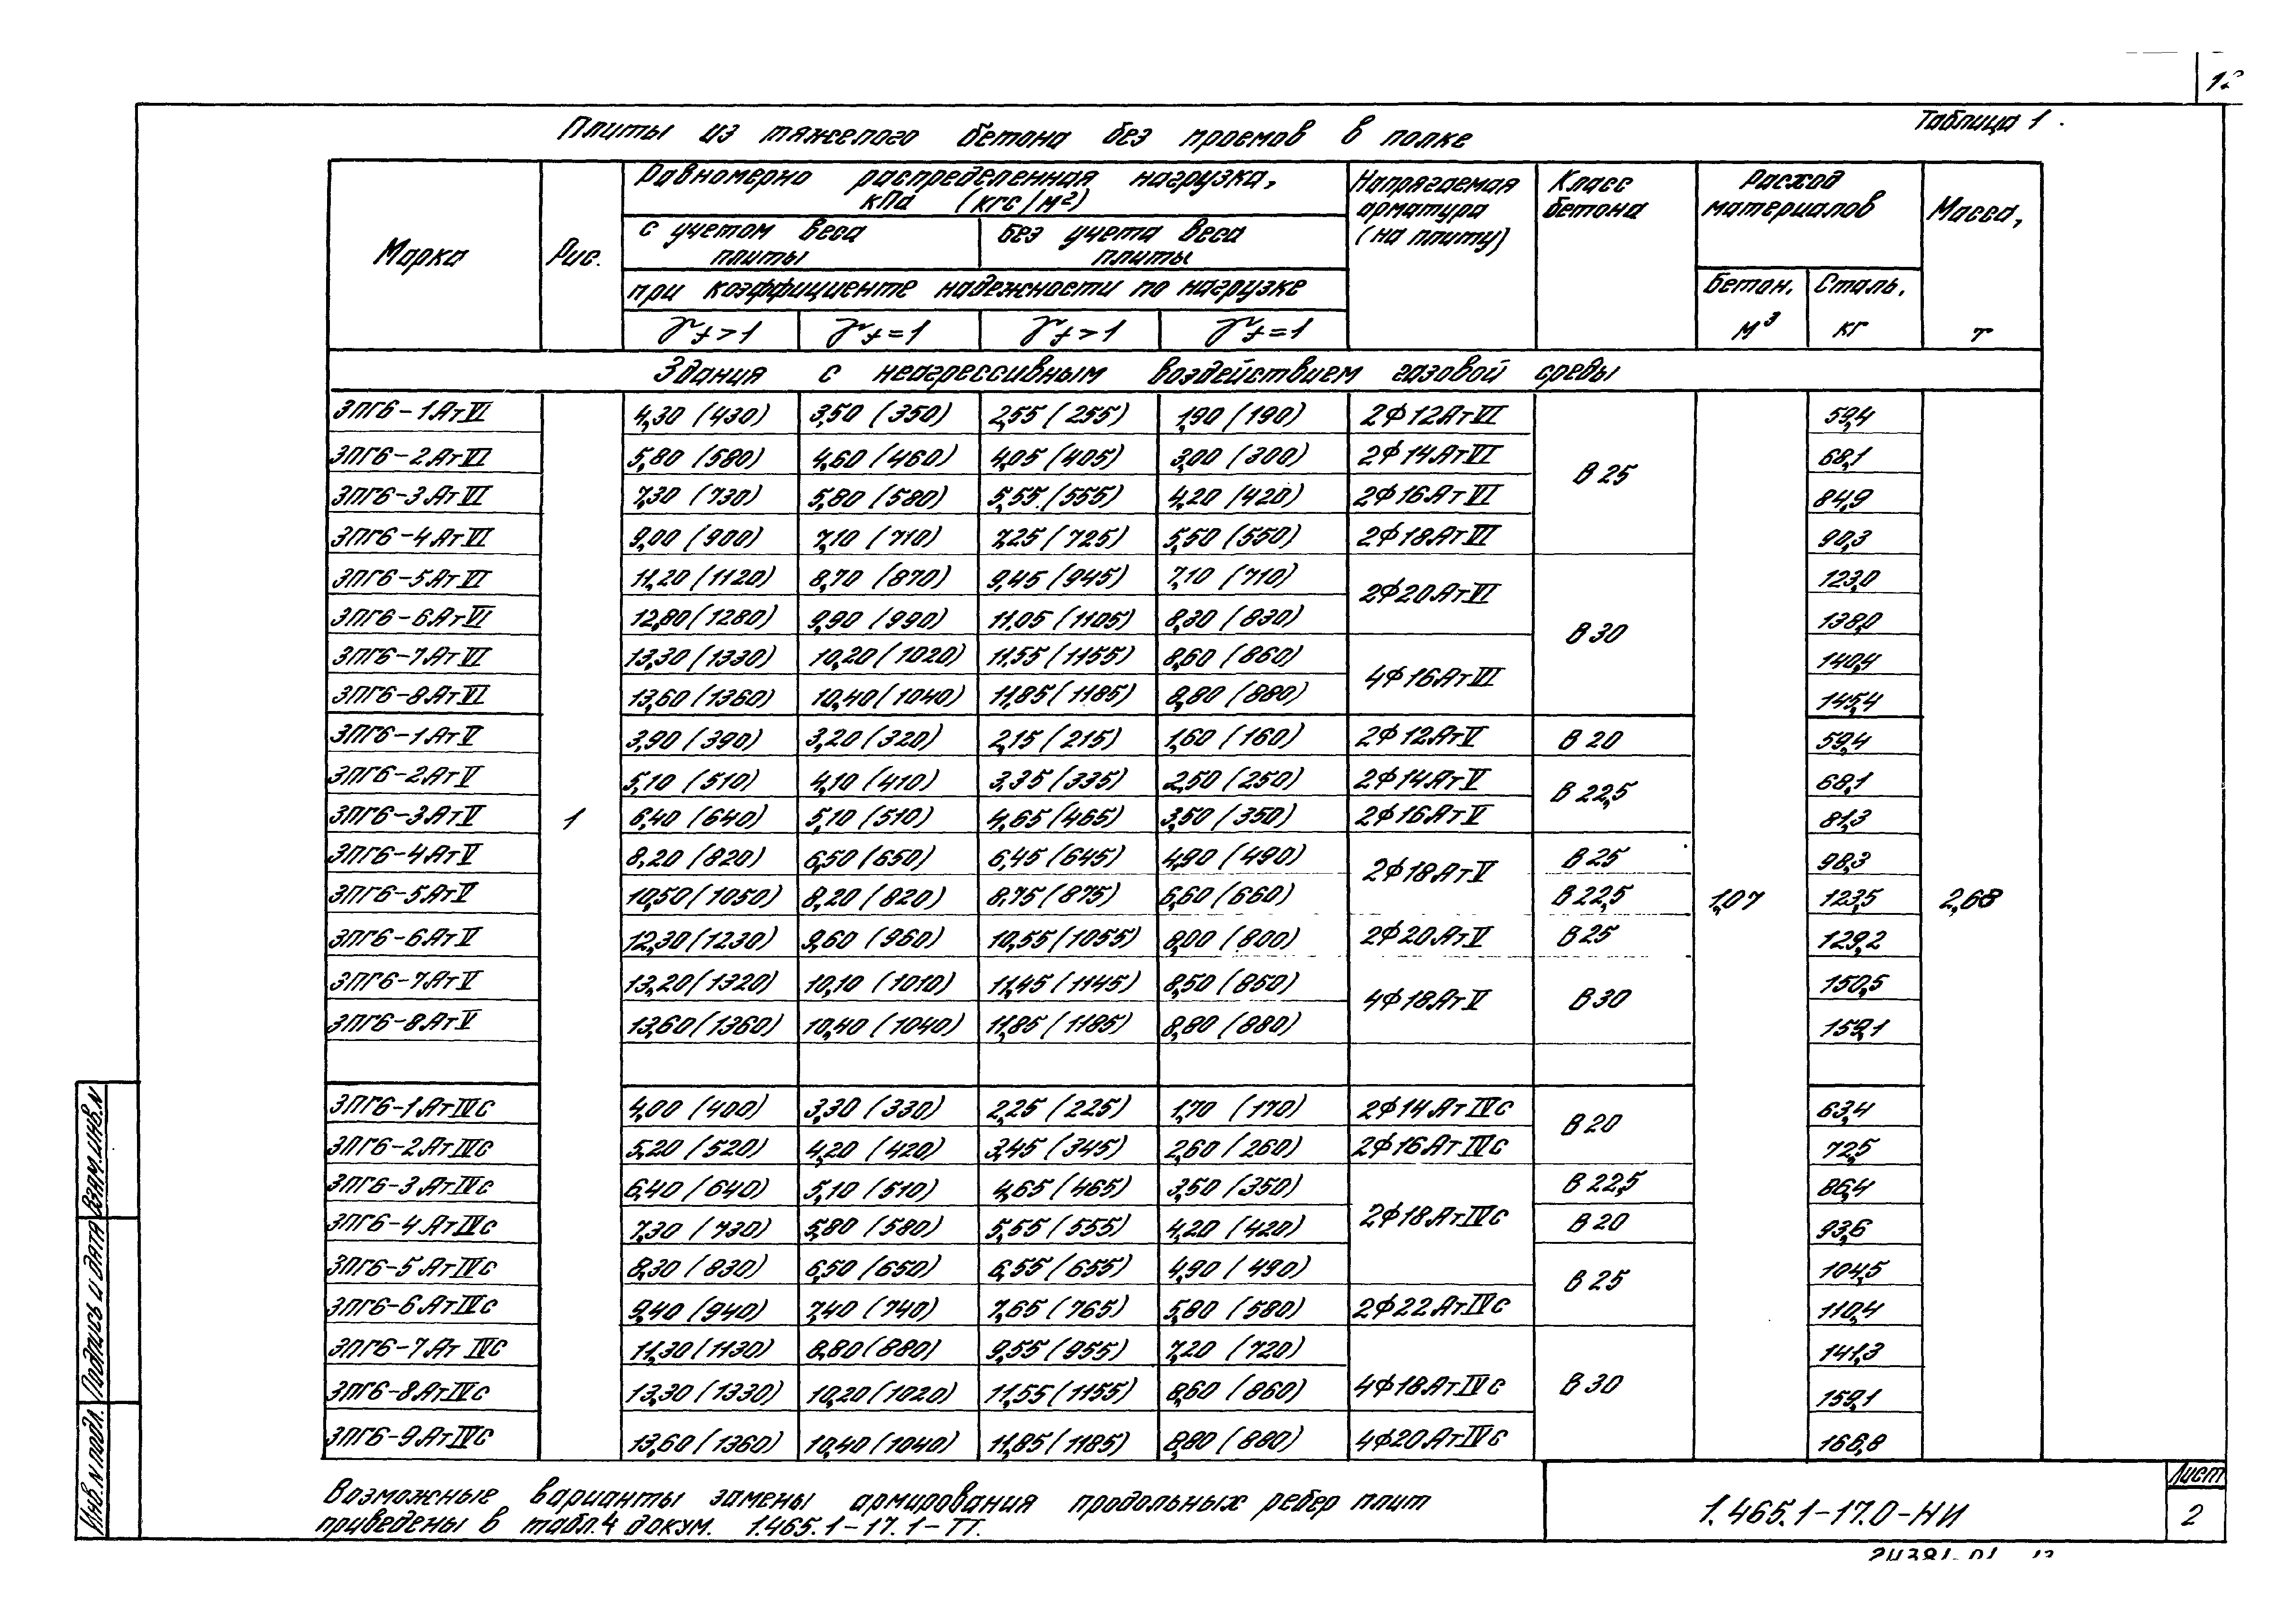 Таблица 1.
Плиты из тяжелого бетона без проемов в полке
Марка Рис. Равномерно распределенная нагрузка, кПа (кгс/м²) Напрягаемая арматура (на плиту) Класс бетона Расход материалов Масса, т
с учетом веса плиты без учета веса плиты
при коэффициенте надежности по нагрузке Бетон, м³ Сталь, кг
γf>1 γf=1 γf>1 γf=1
Здания с неагрессивным воздействием газовой среды
3ПГ6-1АтVI 4,30 (430) 3,50 (350) 2,55 (255) 1,90 (190) 2ф12АтVI 59,4
3ПГ6-2АтVI 5,80 (580) 4,60 (460) 4,05 (405) 3,00 (300) 2ф14АтVI В 25 68,1
3ПГ6-3АтVI 7,30 (730) 5,80 (580) 5,55 (555) 4,20 (420) 2ф16АтVI 84,9
3ПГ6-4АтVI 9,00 (900) 7,10 (710) 7,25 (725) 5,50 (550) 2ф18АтVI 90,3
3ПГ6-5АтVI 11,20 (1120) 8,70 (870) 9,45 (945) 7,10 (710) 2ф20АтVI 123,0
3ПГ6-6АтVI 12,80 (1280) 9,90 (990) 11,05 (1105) 8,30 (830) В 30 138,0
3ПГ6-7АтVI 13,30 (1330) 10,20 (1020) 11,55 (1155) 8,60 (860) 4ф16АтVI 140,4
3ПГ6-8АтVI 13,60 (1360) 10,40 (1040) 11,85 (1185) 8,80 (880) 145,4
3ПГ6-1АтV 3,90 (390) 3,20 (320) 2,15 (215) 1,60 (160) 2ф12АтV В 20 59,4
3ПГ6-2АтV 5,10 (510) 4,10 (410) 3,35 (335) 2,50 (250) 2ф14АтV В 22,5 68,1
3ПГ6-3АтV 1 6,40 (640) 5,10 (510) 4,65 (465) 3,50 (350) 2ф16АтV 81,3
3ПГ6-4АтV 8,20 (820) 6,50 (650) 6,45 (645) 4,90 (490) 2ф18АтV В 25 98,3
3ПГ6-5АтV 10,50 (1050) 8,20 (820) 8,75 (875) 6,60 (660) В 22,5 1,07 123,5 2,68
3ПГ6-6АтV 12,30 (1230) 9,60 (960) 10,55 (1055) 8,00 (800) 2ф20АтV В 25 129,2
3ПГ6-7АтV 13,20 (1320) 10,10 (1010) 11,45 (1145) 8,50 (850) 4ф18АтV В 30 150,5
3ПГ6-8АтV 13,60 (1360) 10,40 (1040) 11,85 (1185) 8,80 (880) 159,1
3ПГ6-1АтIVС 4,00 (400) 3,30 (330) 2,25 (225) 1,70 (170) 2ф14АтIVС В 20 63,4
3ПГ6-2АтIVС 5,20 (520) 4,20 (420) 3,45 (345) 2,60 (260) 2ф16АтIVС 72,5
3ПГ6-3АтIVС 6,40 (640) 5,10 (510) 4,65 (465) 3,50 (350) 2ф18АтIVС В 22,5 86,4
3ПГ6-4АтIVС 7,30 (730) 5,80 (580) 5,55 (555) 4,20 (420) В 20 93,6
3ПГ6-5АтIVС 8,30 (830) 6,50 (650) 6,55 (655) 4,90 (490) В 25 104,5
3ПГ6-6АтIVС 9,40 (940) 7,40 (740) 7,65 (765) 5,80 (580) 2ф22АтIVС 110,4
3ПГ6-7АтIVС 11,30 (1130) 8,80 (880) 9,55 (955) 7,20 (720) 141,3
3ПГ6-8АтIVС 13,30 (1330) 10,20 (1020) 11,55 (1155) 8,60 (860) 4ф18АтIVС В 30 159,1
3ПГ6-9АтIVС 13,60 (1360) 10,40 (1040) 11,85 (1185) 8,80 (880) 4ф20АтIVС 168,8
Возможные варианты замены армирования продольных ребер плит
приведены в табл.4 докум. 1.465.1-17.1-ТТ.
1.465.1-17.0-НИ
Лист
2
Инв.N подл. Подпись и дата Взам.инв.N